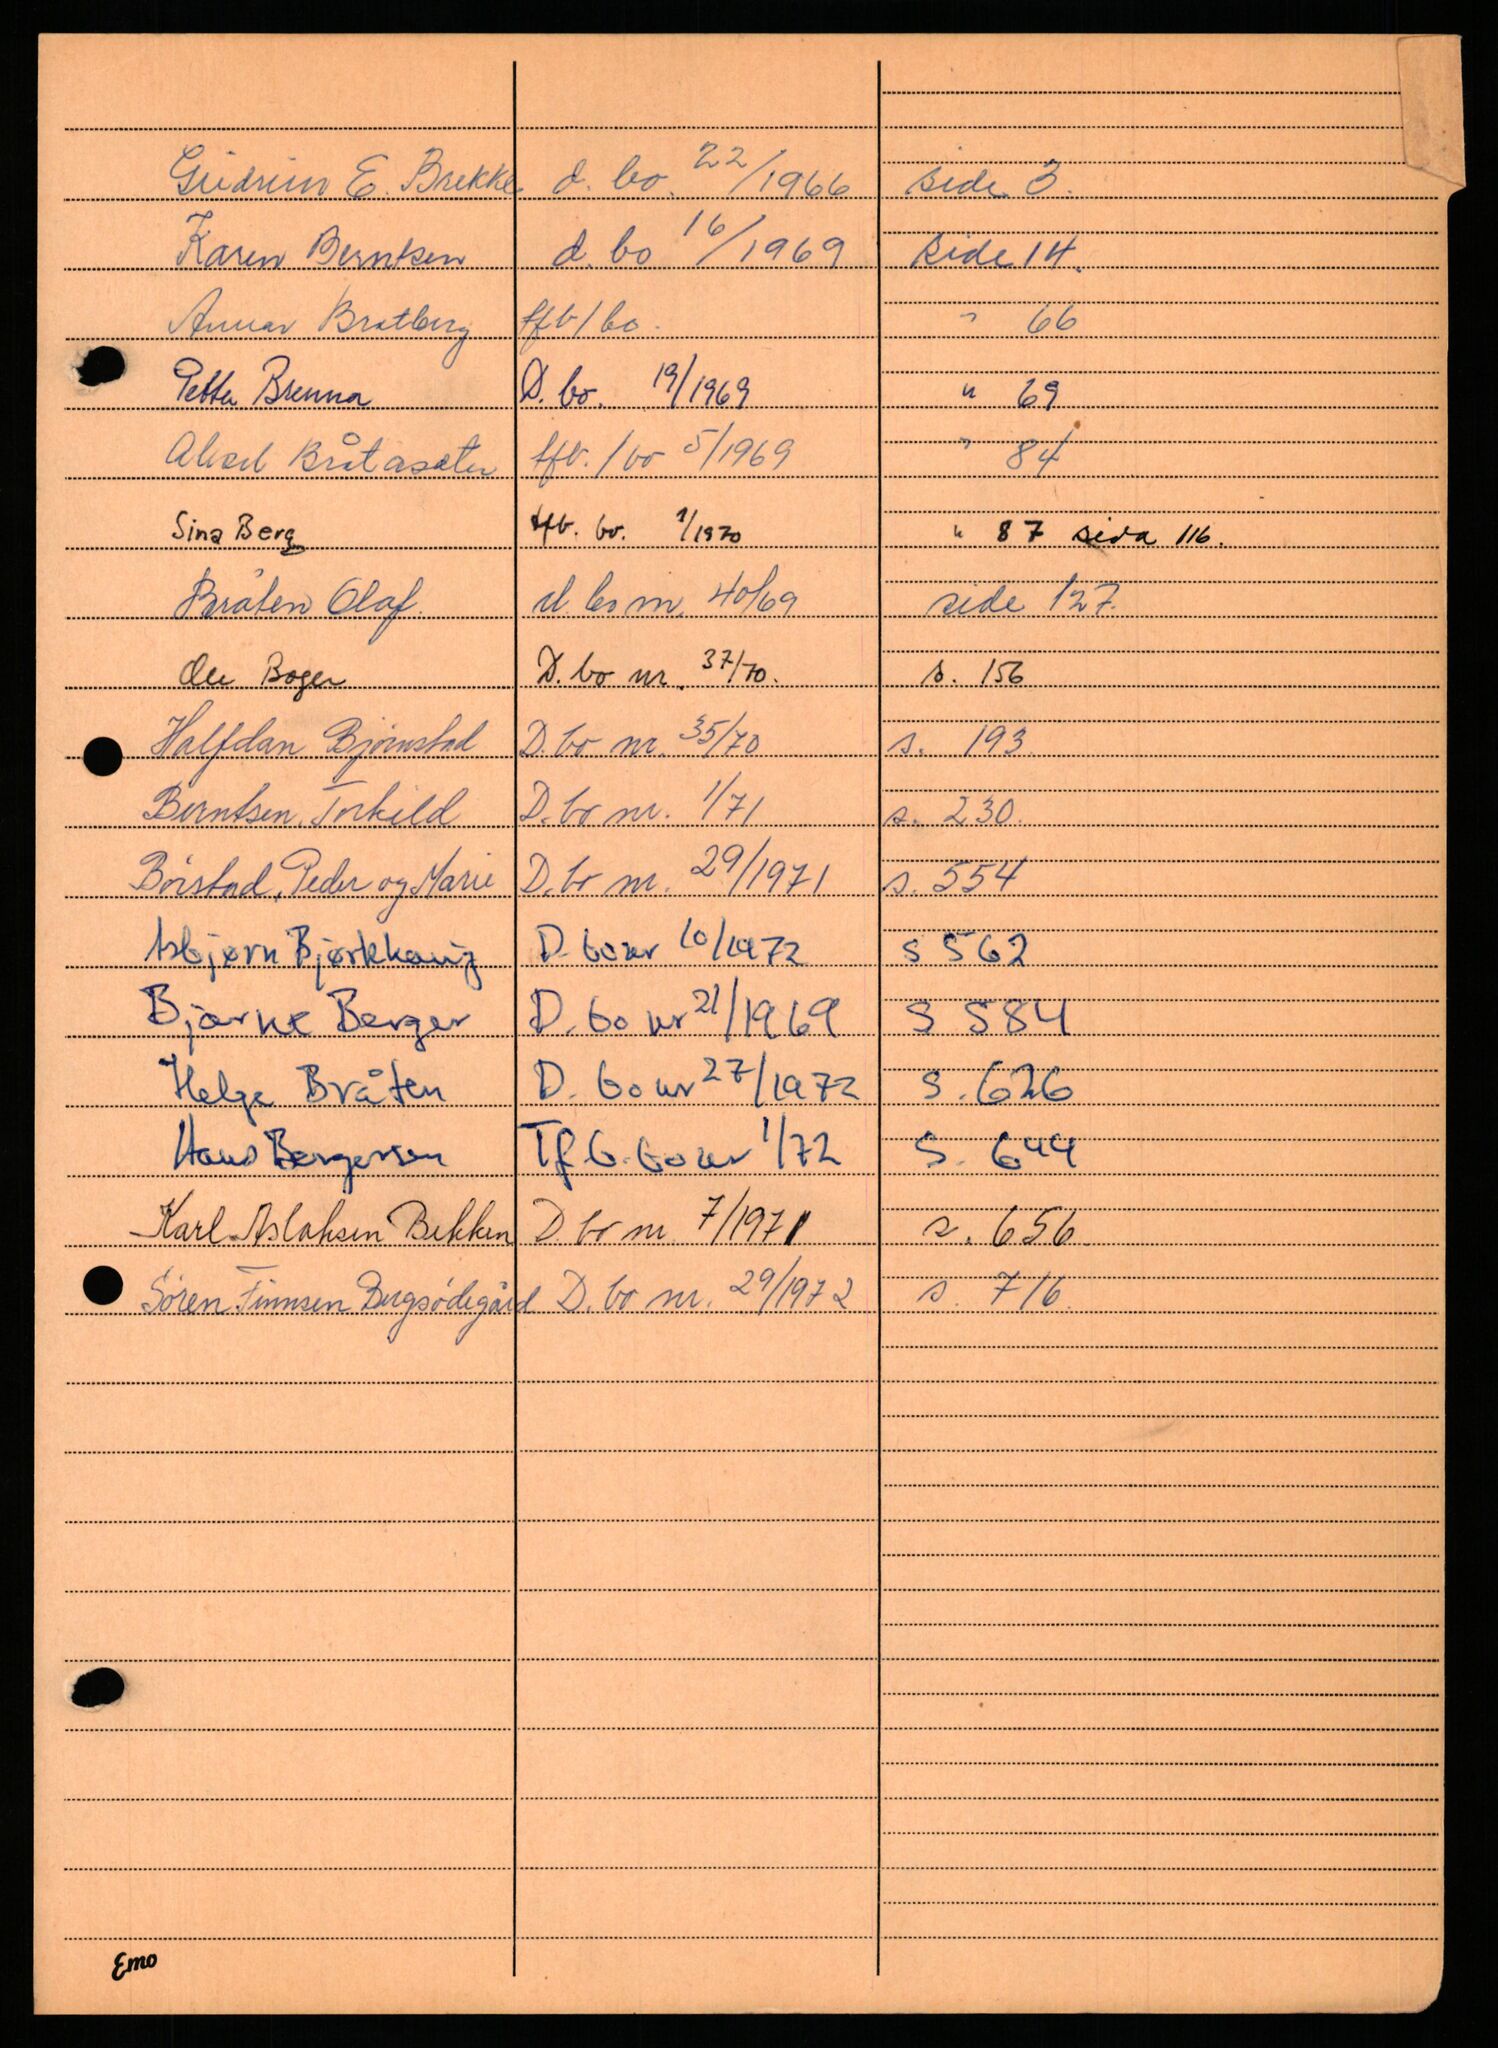 Gudrun E. Brekke d. bo. 22/1966 side 3.
Karen Berntsen d. bo 16/1969 side 14.
Annar Bratberg tfb/bo. " 66
Petter Brenna D. bo. 19/1969 " 69
Aksel Bråtasæter tfb./bo 5/1969 " 84
Sina Berg tfb. bo. 1/1970 " 87 sida 116.
Bråten Olaf. d. bo nr. 40/69 side 127.
Ole Boger D. bo nr. 37/70. s. 156
Halfdan Bjørnstad D. bo nr. 35/70 s. 193
Berntsen, Torkild D. bo nr. 1/71 s. 230.
Börstad, Peder og Marie D. bo nr. 29/1971 s. 554
Asbjørn Bjørkhaug D. bo nr 10/1972 s 562
Bjarne Berger D. bo nr 21/1969 S 584
Helge Bråten D. bo nr 27/1972 S. 626
Hans Bergersen Tfb. bo nr 1/72 S. 644
Karl Aslaksen Bekken D. bo nr. 7/1971 s. 656.
Sören Finnsen Bergsödegård D. bo nr. 29/1972 s. 716.
Emo